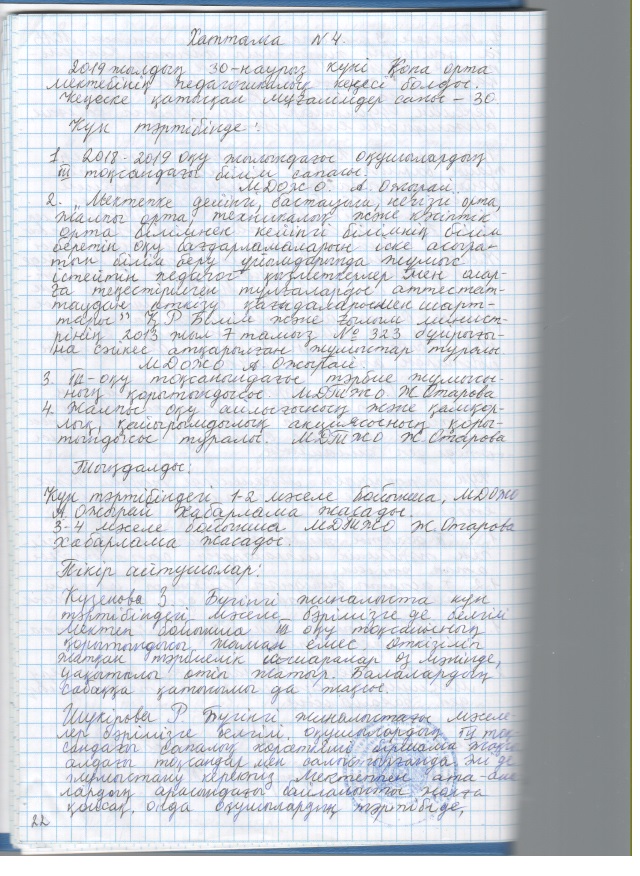 Хаттама N 4.
2019 жылдың 30-наурыз күні Қопа орта
мектебінің педагогикалық кеңесі болды.
Кеңеске қатысқан мұғалімдер саны – 30
Күн тәртібінде:
1. 2018-2019 оқу жылындағы оқушылардың
III тоқсандағы білім сапасы.
МДОЖО. А Ожырай.
2. „Мектепке дейінгі, бастауыш, негізгі орта,
жалпы орта, техникалық және кәсіптік
орта білімнен кейінгі білімнің білім
беретін оқу бағдарламаларын іске асыра-
тын білім беру ұйымдарында жұмыс
істейтін педагог қызметкерлер мен олар-
ға теңестірілген тұлғаларды аттестат-
таудан өткізу қағидалары мен шарт-
тары" ҚР Білім және ғылым минист-
рінің 2013 жыл 7 тамыз № 323 бұйрығы-
на сәйкес атқарылған жұмыстар туралы
МДОЖО А Ожырай.
3. III-оқу тоқсанындағы тәрбие жұмысы-
ның қорытындысы. МДТЖО Ж.Отарова
4. Жалпы оқу айлығының және қамқор-
лық, қайырымдылық акциясының қоры-
тындысы туралы. МДТЖО Ж.Отарова
Тыңдалды:
Күн тәртібіндегі 1-2 мәселе бойынша, МДОЖО
А Ожырай хабарлама жасады.
3-4 мәселе бойынша МДТЖО Ж.Отарова
хабарлама жасады.
Пікір айтушылар:
З Бүгінгі жиналыста күн
тәртібіндегі мәселе бәрімізге де белгілі
Мектеп бойынша III оқу тоқсанының
қорытындысы жаман емес. Өткізіліп
жатқан тәрбиелік ісшаралар өз мәнінде,
уақытылы өтіп жатыр. Балалардың
сабаққа қатысымы да жақсы.
Шукірова Р. Бүгінгі жиналыстағы мәселе-
лер бәрімізге белгілі. оқушылардың III тоқ-
сандағы сапалық көрсеткіші біршама
алдағы тоқсандармен салыстырғанда әлі де
жұмыстану керекпіз Мектеппен ата-ана-
лардың арасындағы байланысты жолға
қойсақ, онда оқушылардың тәртібіде,
22